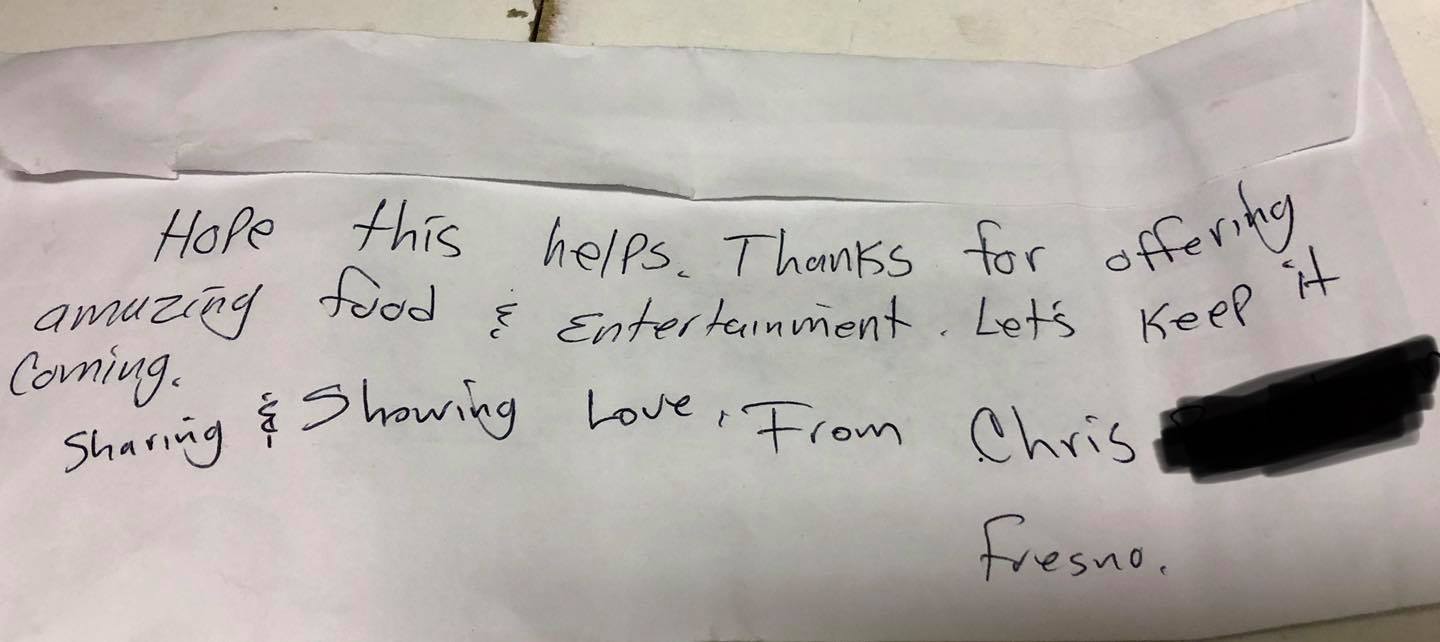 Hope this helps. Thanks for offering
amazing food & Entertainment. Let's Keep it
Coming.
Sharing & Showing Love, From Chris
Fresno.